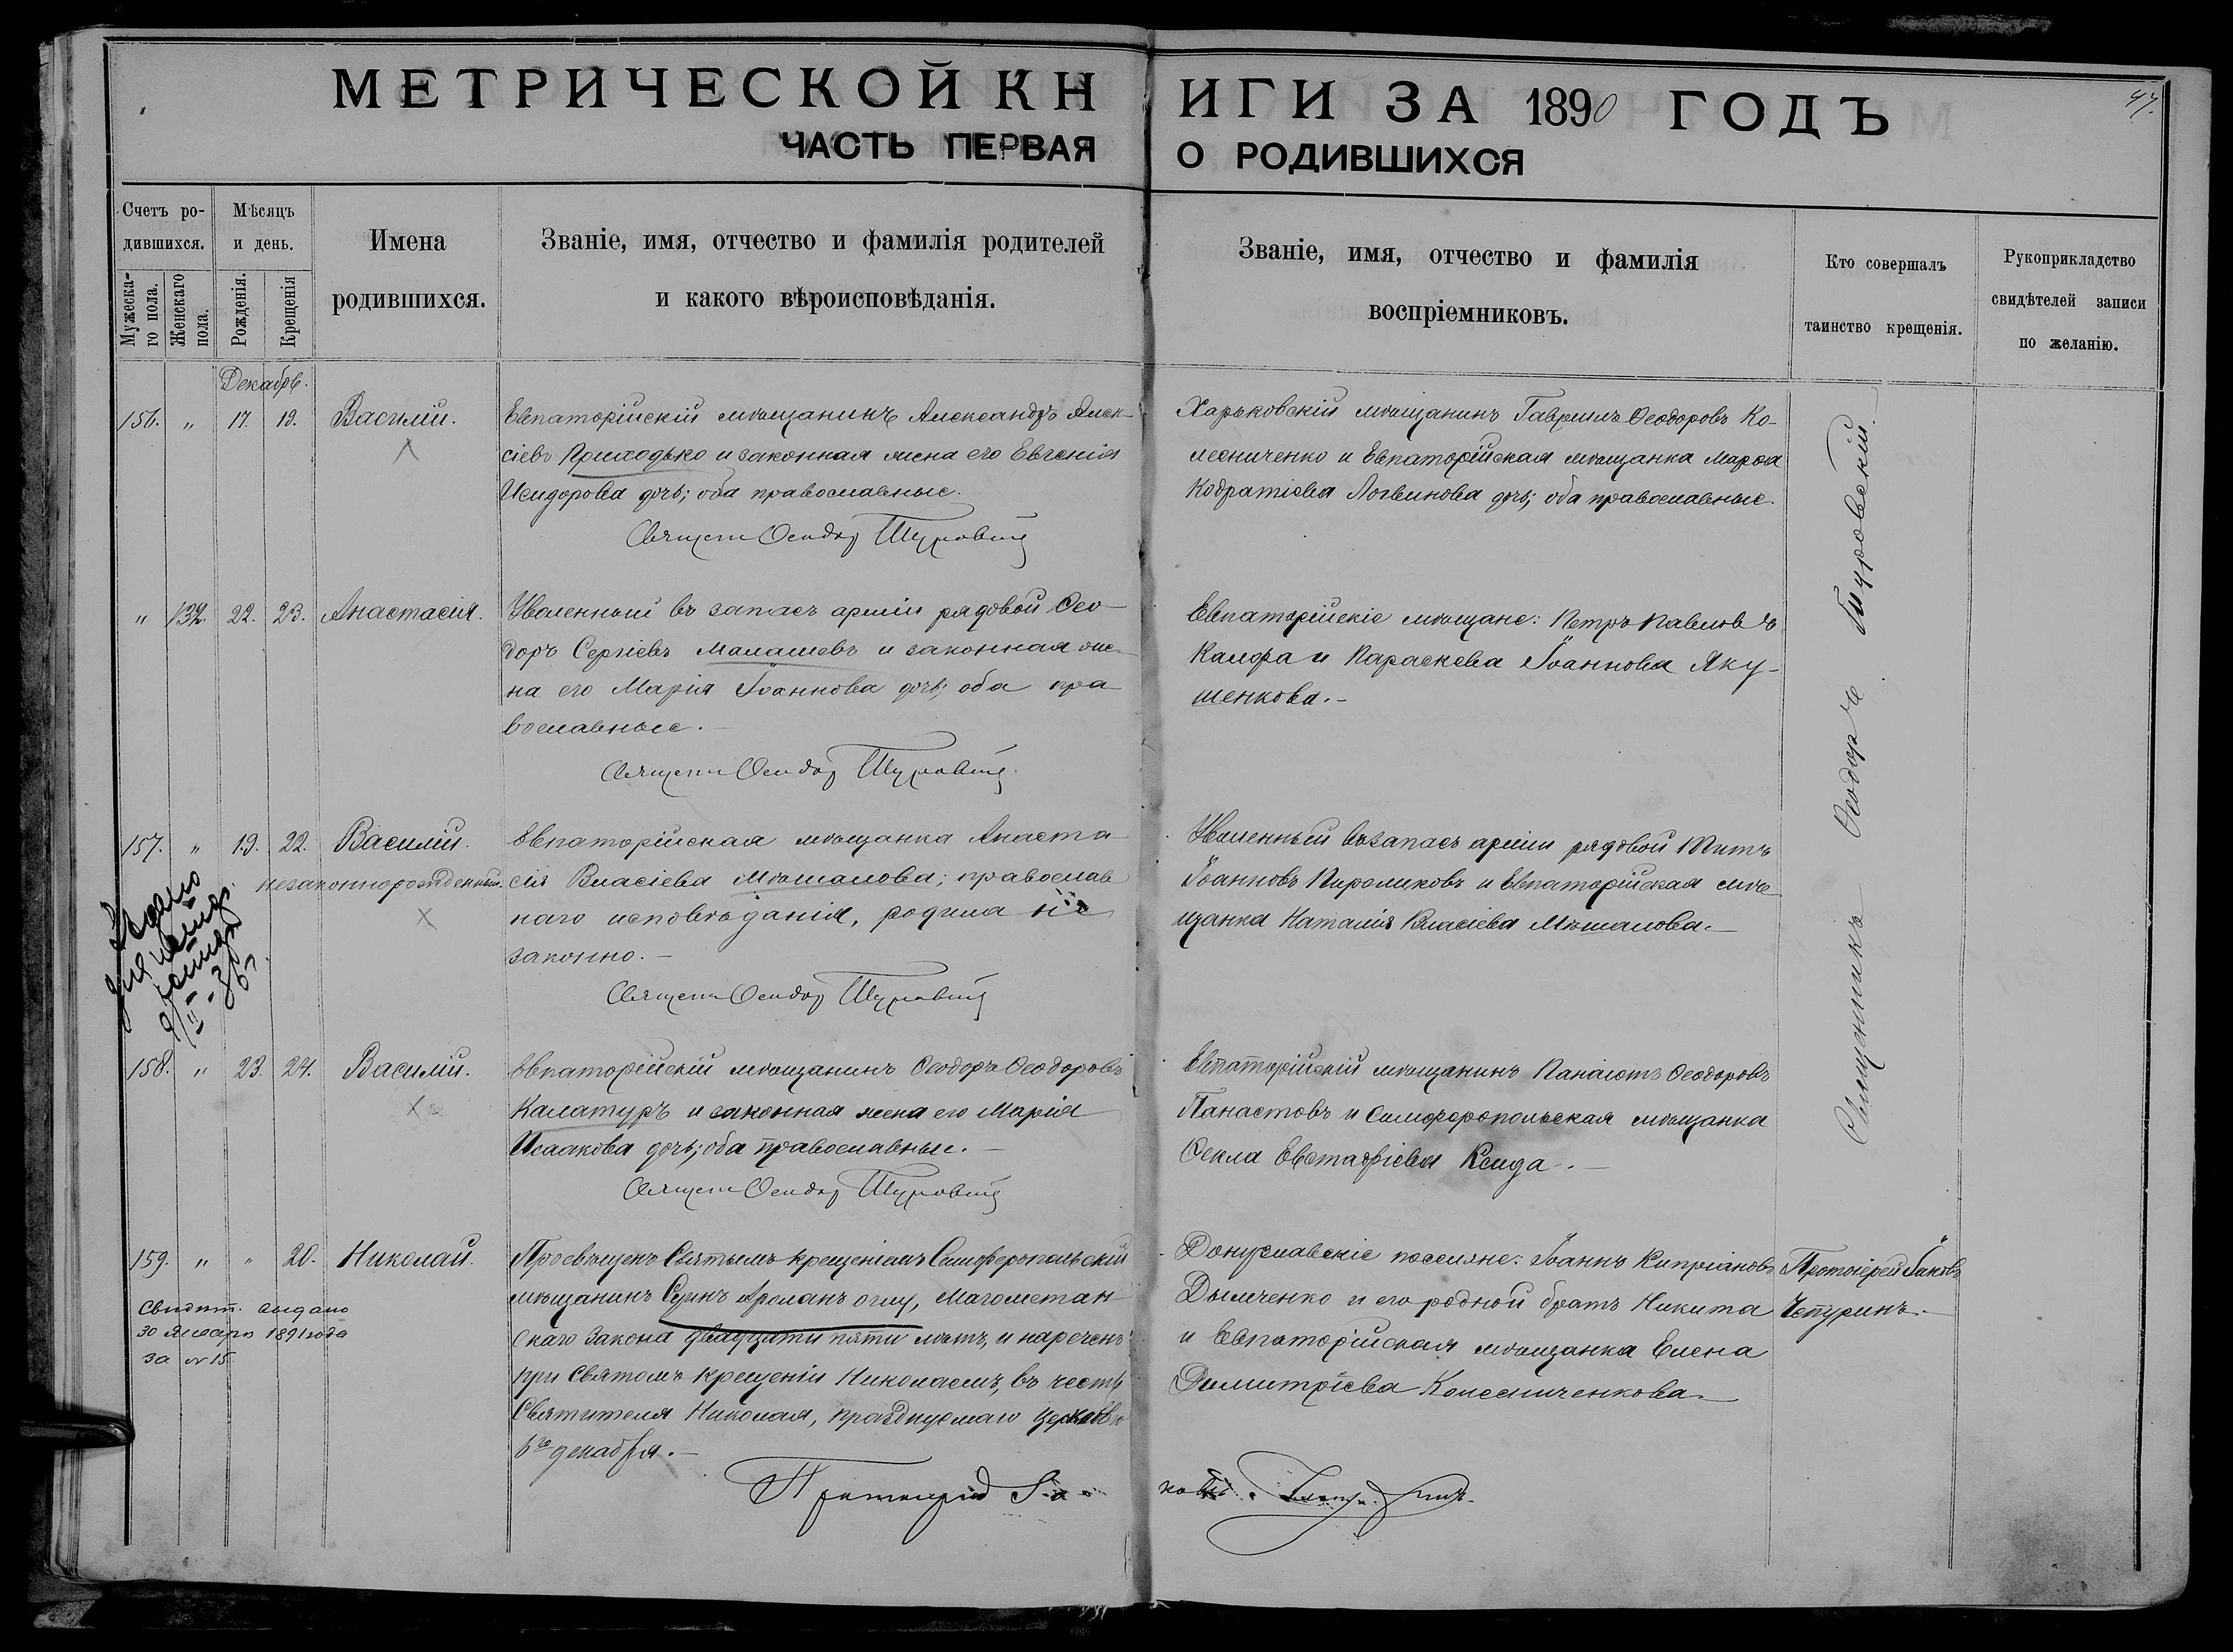 МЕТРИЧЕСКОЙ КНИГИ ЗА 1890 ГОДЪ
47.
ЧАСТЬ ПЕРВАЯ О РОДИВШИХСЯ
Счетъ ро-
дившихся.
Мужеска-
го пола.
Женскаго
пола.
Мѣсяцъ
и день.
Рожденія.
Крещенія
Имена
родившихся.
Званіе, имя, отчество и фамилія родителей
и какого вѣроисповѣданія.
Званіе, имя, отчество и фамилія
воспріемниковъ.
Кто совершалъ
таинство крещенія.
Рукоприкладство
свидѣтелей записи
по желанію.
Декабрь.
156. " 17. 19. Василій.
Евпаторійскій мѣщанинъ Александръ Алек-
сіевъ Приходько и законная жена его Евгенія
Исидорова дочь; оба православные.
Священ Ѳеодор Туровскій
Харьковскій мѣщанинъ Гавріилъ Ѳеодоровъ Ко-
лесниченко и Евпаторійская мѣщанка Марѳа
Кодратіева Логвинова дочь; оба православные.
" 132. 22. 23. Анастасія.
Уволенный въ запасъ арміи рядовой Ѳео-
доръ Сергіевъ Малашевъ и законная же-
на его Марія Іоаннова дочь; оба пра-
вославные.
Священ Ѳеодор Туровскій.
Евпаторійскіе мѣщане: Петръ Павловъ
Калфа и Параскева Іоаннова Яку-
шенкова.
157. " 19. 22. Василій.
незаконнорожденный.
Евпаторійская мѣщанка Анаста-
сія Власіева Мѣшалова; православ-
наго исповѣданія, родила не
законно.
Священ Ѳеодор Туровскій
Уволенный въ запасъ арміи рядовой Титъ
Іоанновъ Пироликовъ и Евпаторійская мѣ-
щанка Наталія Власіева Мѣшалова.
158. " 23. 24. Василій.
Евпаторійскій мѣщанинъ Ѳеодоръ Ѳеодоровъ
Калатуръ и законная жена его Марія
Исаакова дочь; оба православные.
Священ Ѳеодор Туровскій
Евпаторійскій мѣщанинъ Панаіотъ Ѳеодоровъ
Панастовъ и Симферопольская мѣщанка
Ѳекла Евстафіева Ксида.
Священникъ Ѳеодоръ Туровскій.
159. " " 20. Николай.
Свидѣт. выдано
30 Января 1891 года
за № 15
Просвѣщенъ Святымъ крещеніемъ Симферопольскій
мѣщанинъ оглу, Магометан-
скаго закона двадцати пяти лѣтъ, и нареченъ
при Святомъ крещеніи Николаемъ, въ честь
Святителя Николая, празднуемаго церковью
6го декабря.
Протоіерей Іаковъ
Донузлавскіе поселяне: Іоаннъ Кипріановъ
Дымченко и его родной братъ Никита
и Евпаторійская мѣщанка Елена
Димитріева Колесниченкова
Протоіерей Іаковъ
Чепуринъ.